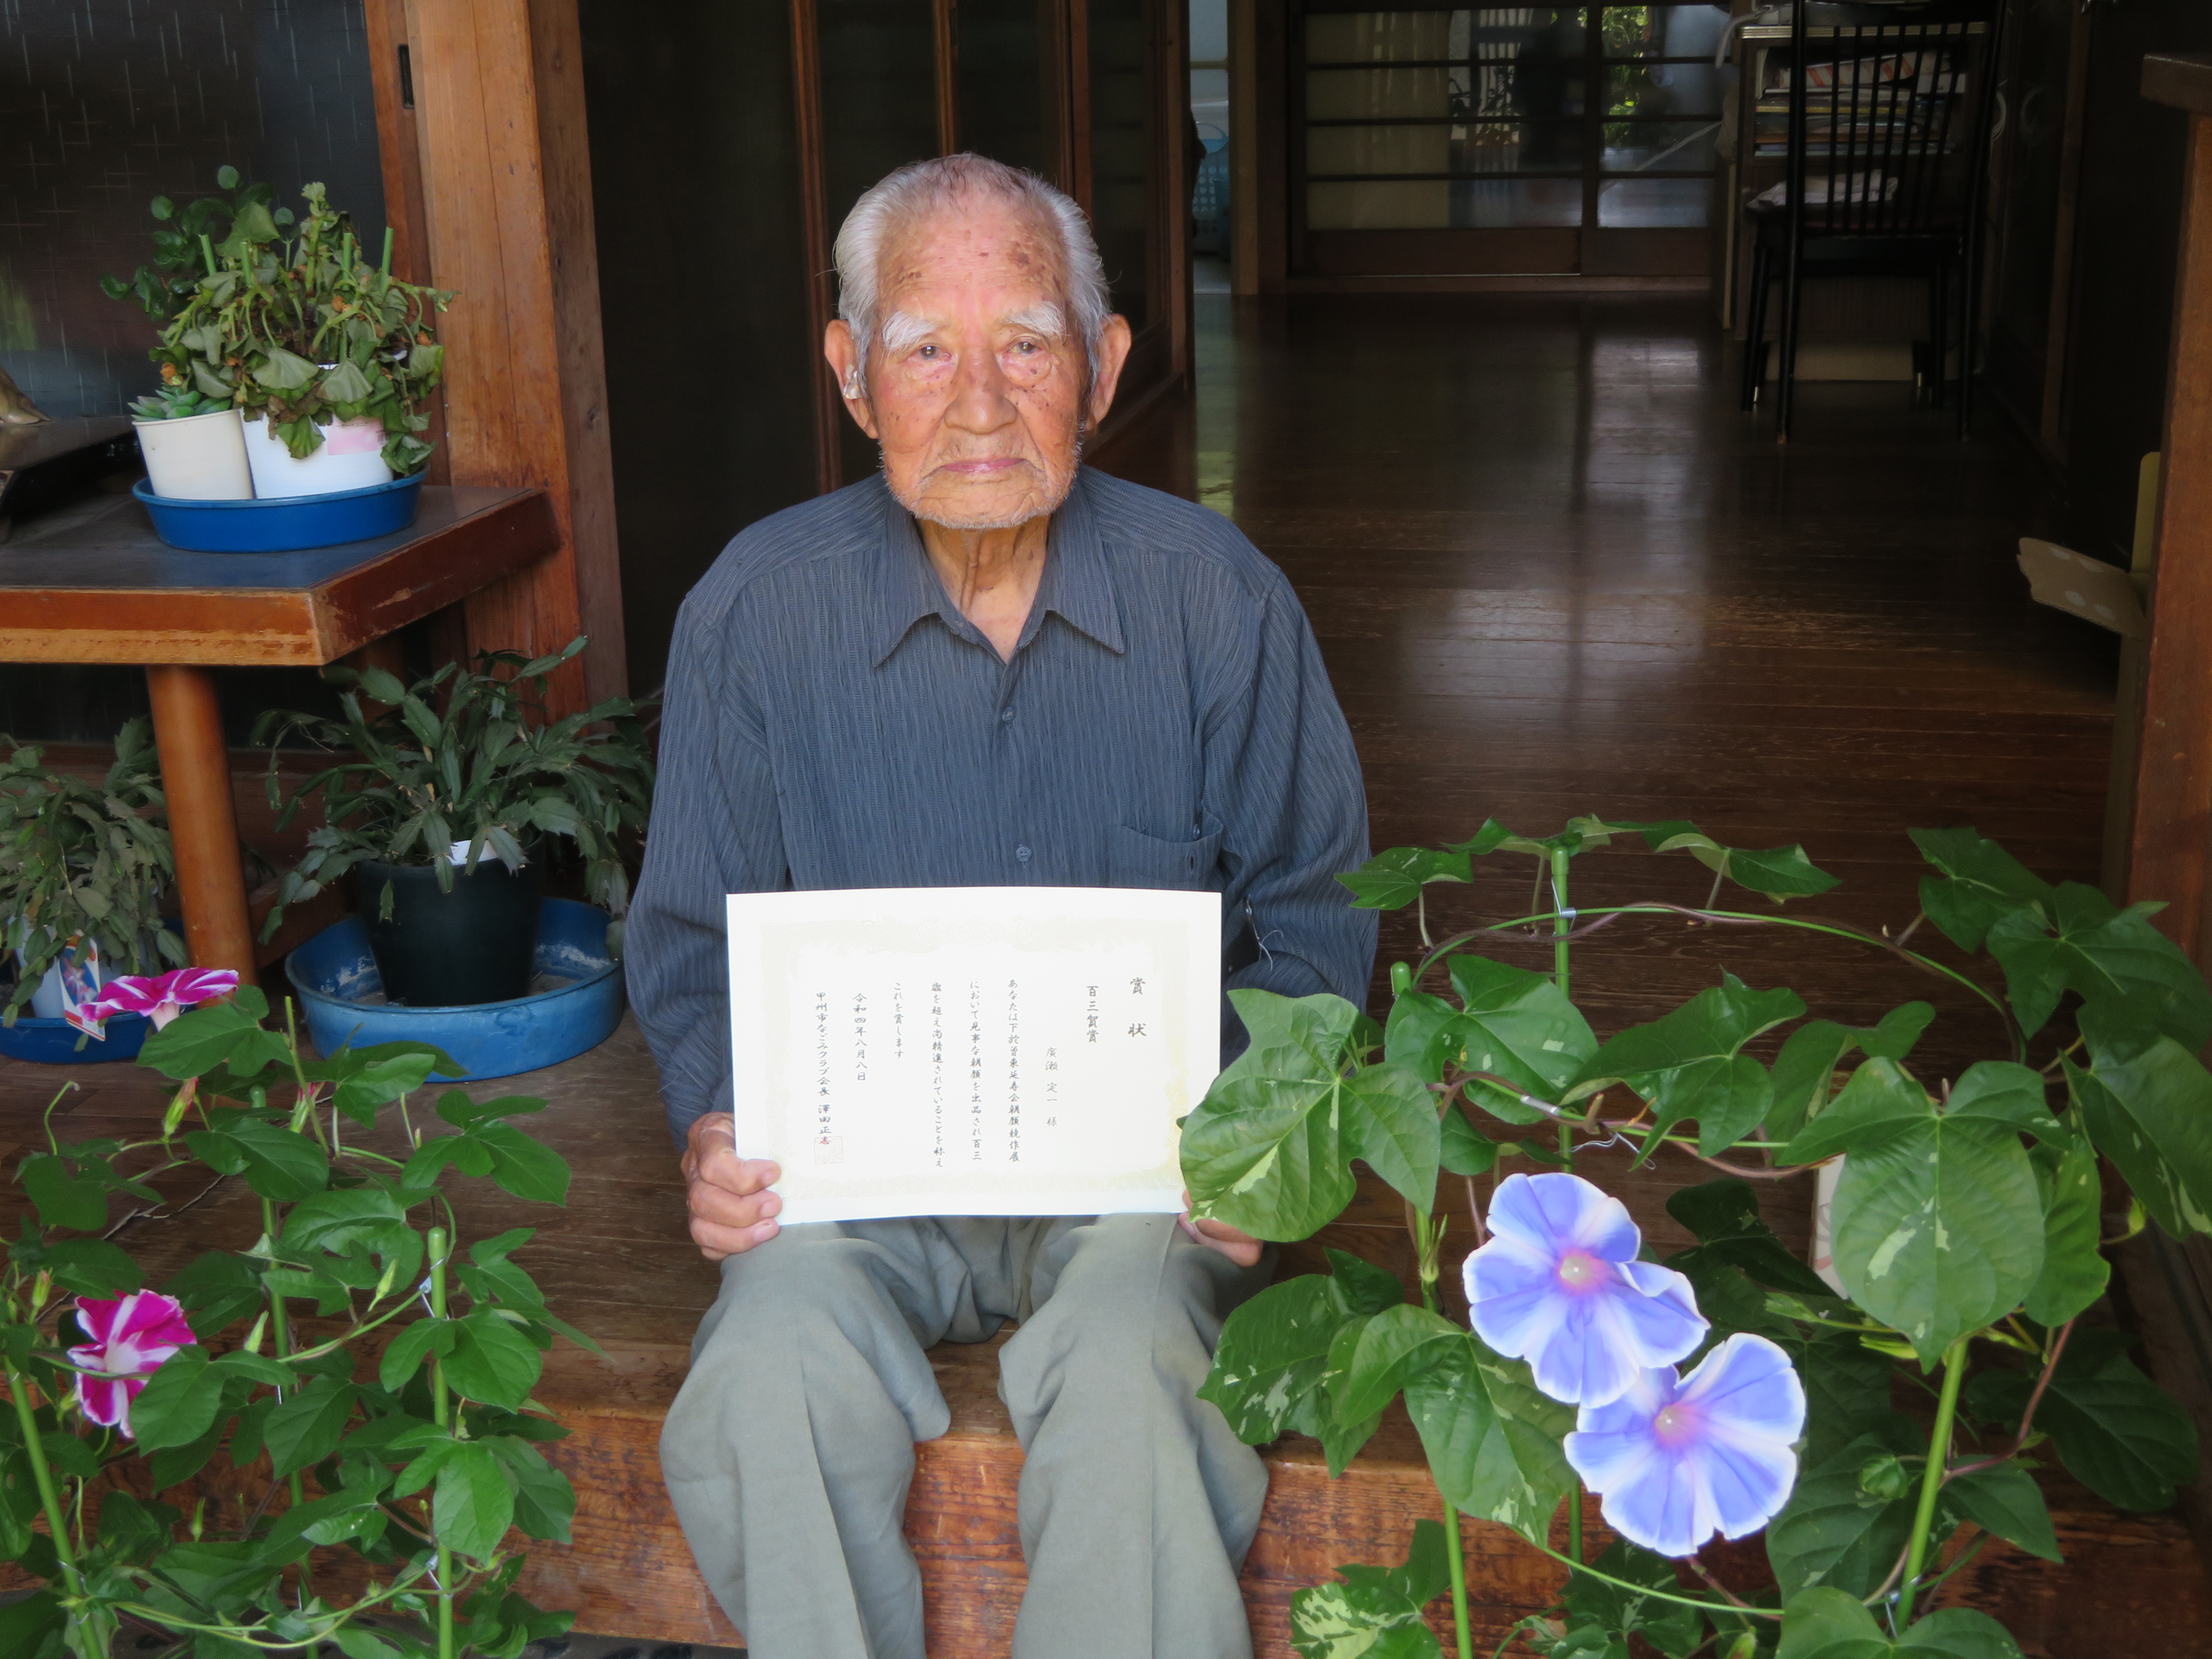 賞状
百三賀賞
廣瀬定一様
あなたは下於曽東延寿会朝顔競作展
において見事な朝顔を出品され百三
歳を超え尚精進されていることを称え
これを賞します
令和四年八月八日
甲州市なごみクラブ会長 澤田正志